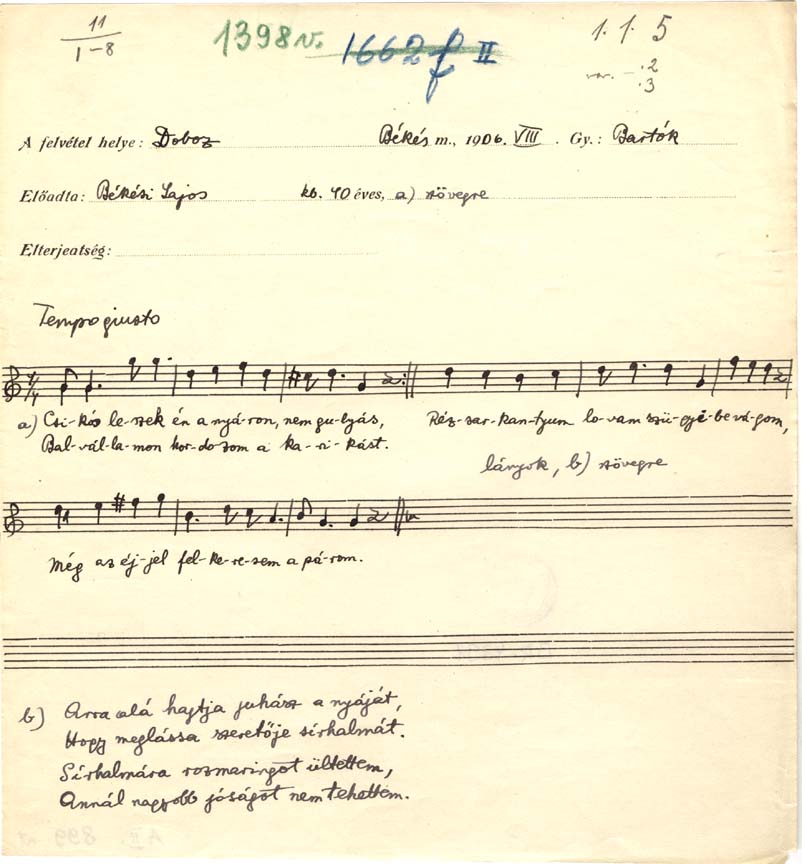 11
1–8
1398 v.
1662 f II
1. 1. 5
var. – .2
.3
A felvétel helye: Doboz Békés m., 1906. VIII. Gy.: Bartók
Előadta: Békési Lajos kb. 40 éves, a) szövegre
Elterjeatség:
Tempo giusto
a) Csi-kós le-szek én a nyá-ron, nem gu-lyás, Réz-sar-kan-tyum lo-vam szü-gyé-be vá-gom,
Bal-vál-la-mon hor-do-zom a ka-ri-kást.
lányok, b) szövegre
Még az éj-jel fel-ke-re-sem a pá-rom.
b) Arra alá hajtja juhász a nyáját,
Hogy meglássa szeretője sírhalmát.
Sírhalmára rozmaringot ültettem,
Annál nagyobb jóságot nem tehettem.